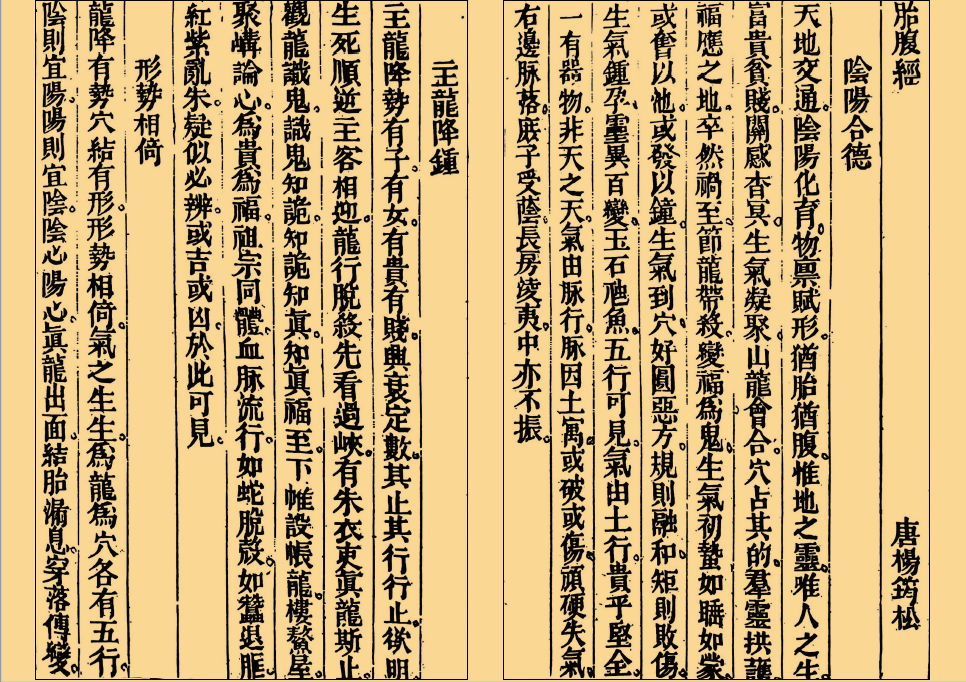 胎腹經
唐楊筠松
陰陽合德
天地交通。陰陽化育。物禀賦形。猶胎猶腹。惟地之靈。雅人之生
富貴貧賤。關感杳冥。生氣凝聚。山龍會合。穴占其的。羣靈拱護
福應之地。卒然禍至。節龍帶殺。變福為鬼。生氣初蟄。如睡如蒙
或奮以池。或發以鐘。生氣到穴。好圓惡方。規則融和。矩則敗傷。
生氣鍾孕。靈異百變。玉石虵魚。五行可見。氣由土行。貴乎堅金
一有器物。非天之天。氣由脉行。脉因土寓。或破或傷。頑硬失氣。
右邊脉落。底子受蔭。長房淩夷。中亦不振。
王龍降鍾
王龍降勢。有子有女。有貴有賤。興衰定數。其止其行。行止欲明
生死順逆。主客相迎。龍行脫殺。先看過峽。有朱衣吏。眞龍斯止
觀龍識鬼。識鬼知詭。知詭知眞。知眞福至。下帷設帳。龍樓鰲屋。
聚講論心。為貴為福。祖宗同體。血脉流行。如蛇脫殼。如蠶退
紅紫亂朱。疑似必辨。或吉或凶。於此可見。
形勢相倚
龍降有勢。穴結有形。形勢相倚。氣之生生。為龍為穴。各有五行。
陰則宜陽。陽則宜陰。陰心陽心。眞龍出面。結胎漏息。穿落傳變。